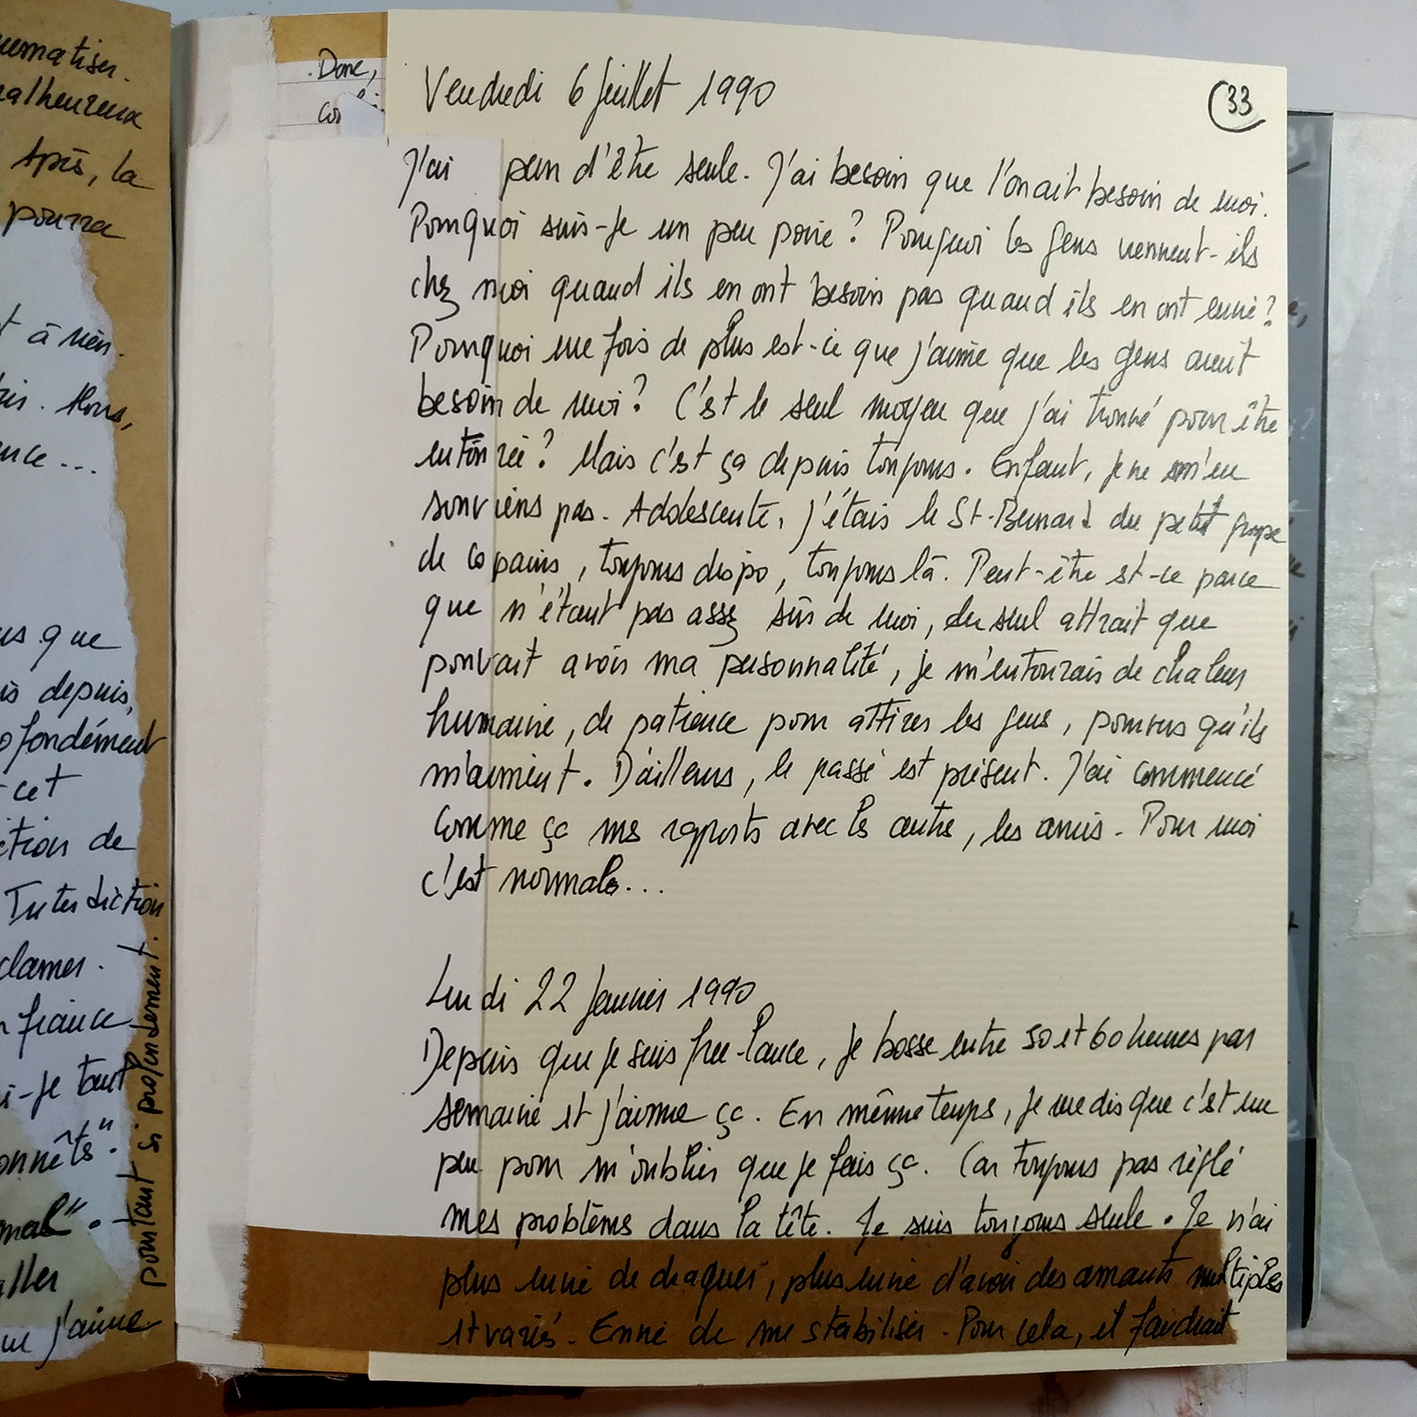 nematiser.
malheureux
Après, la
pourra
t à rien.
is. Alors,
nce...
us que
is depuis,
ofondément
cet
ction de
Interdiction
clamer.
fiance
i-je tant
onnêts".
mal".
aller
j'aime
pourtant si profondément.
Donc,
Vendredi 6 Juillet 1990
33
J'ai peur d'être seule. J'ai besoin que l'on ait besoin de moi.
Pourquoi suis-je un peu poire ? Pourquoi les gens viennent-ils
chez moi quand ils en ont besoin pas quand ils en ont envie ?
Pourquoi une fois de plus est-ce que j'aime que les gens aient
besoin de moi ? C'est le seul moyen que j'ai trouvé pour être
entourée ? Mais c'est ça depuis toujours. Enfant, je ne m'en
souviens pas. Adolescente, j'étais le St-Bernard du petit groupe
de copains, toujours dispo, toujours là. Peut-être est-ce parce
que n'étant pas assez sûre de moi, du seul attrait que
pouvait avoir ma personnalité, je m'entourais de chaleur
humaine, de patience pour attirer les gens, pourvus qu'ils
m'aiment. D'ailleurs, le passé est présent. J'ai commencé
comme ça mes rapports avec les autres, les amis. Pour moi
c'est normal...
Lundi 22 Janvier 1990
Depuis que je suis free-lance, je bosse entre 50 et 60 heures par
semaine et j'aime ça. En même temps, je me dis que c'est un
peu pour m'oublier que je fais ça. Car toujours pas réglé
mes problèmes dans la tête. Je suis toujours seule. Je n'ai
plus envie de draguer, plus envie d'avoir des amants multiples
et variés. Envie de me stabiliser. Pour cela, il faudrait